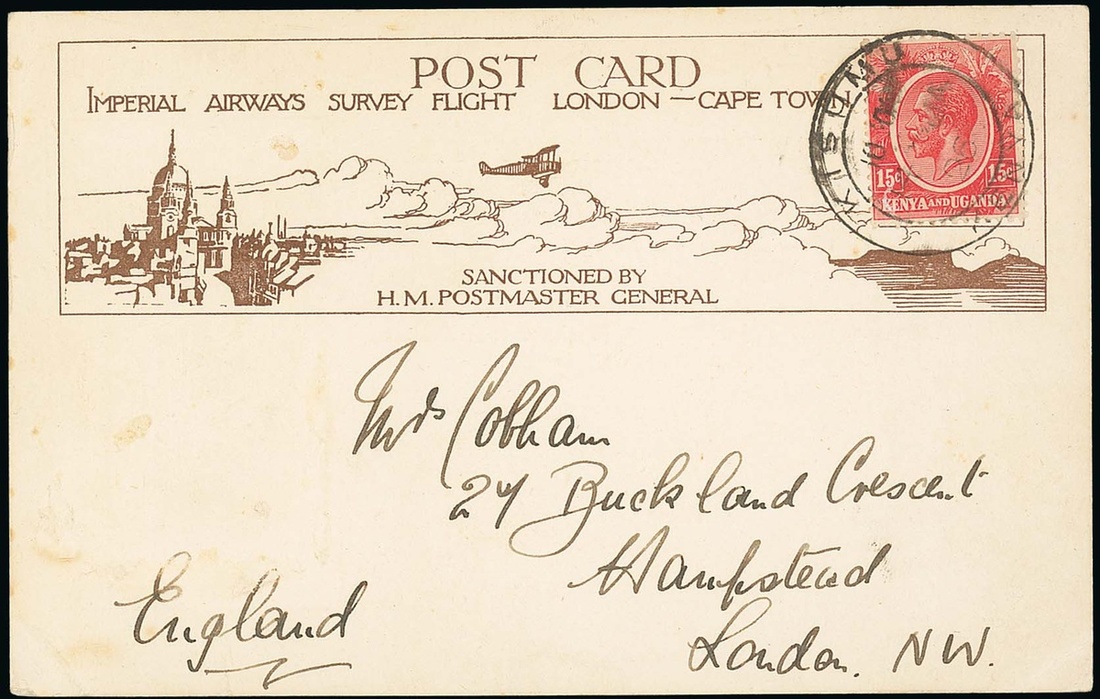 POST CARD
IMPERIAL AIRWAYS SURVEY FLIGHT LONDON — CAPE TOWN
KISUMU
15c 15c
KENYA AND UGANDA
SANCTIONED BY
H.M. POSTMASTER GENERAL
Mrs Cobham
24 Buckland Crescent
Hampstead
London. N.W.
England